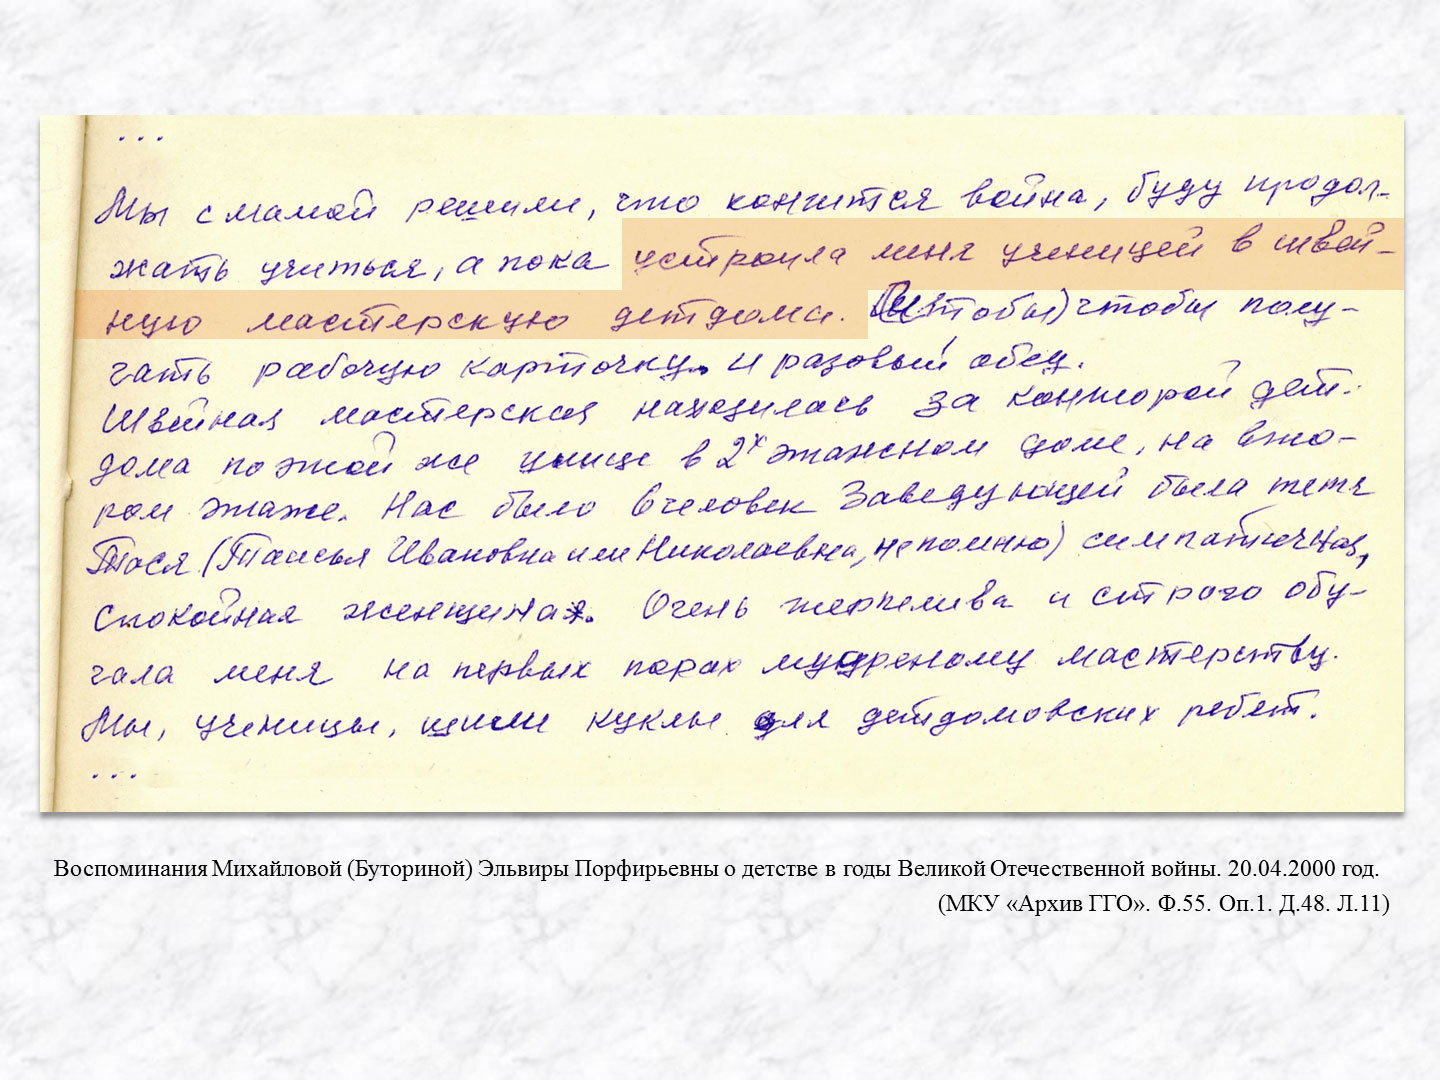 ...
Мы с мамой решили, что кончится война, буду продол-
жать учиться, а пока устроила меня ученицей в швей-
ную мастерскую детдома. (Чтобы) чтобы полу-
чать рабочую карточку и разовый обед.
Швейная мастерская находилась за конторой дет-
дома по этой же улице в 2х этажном доме, на вто-
ром этаже. Нас было 6 человек Заведующей была тетя
Тася (Таисья Ивановна или Николаевна, не помню) симпатичная,
спокойная женщина. Очень терпелива и строго обу-
чала меня на первых порах мудреному мастерству.
Мы, ученицы, шили куклы для детдомовских ребят.
...
Воспоминания Михайловой (Буториной) Эльвиры Порфирьевны о детстве в годы Великой Отечественной войны. 20.04.2000 год.
(МКУ «Архив ГГО». Ф.55. Оп.1. Д.48. Л.11)